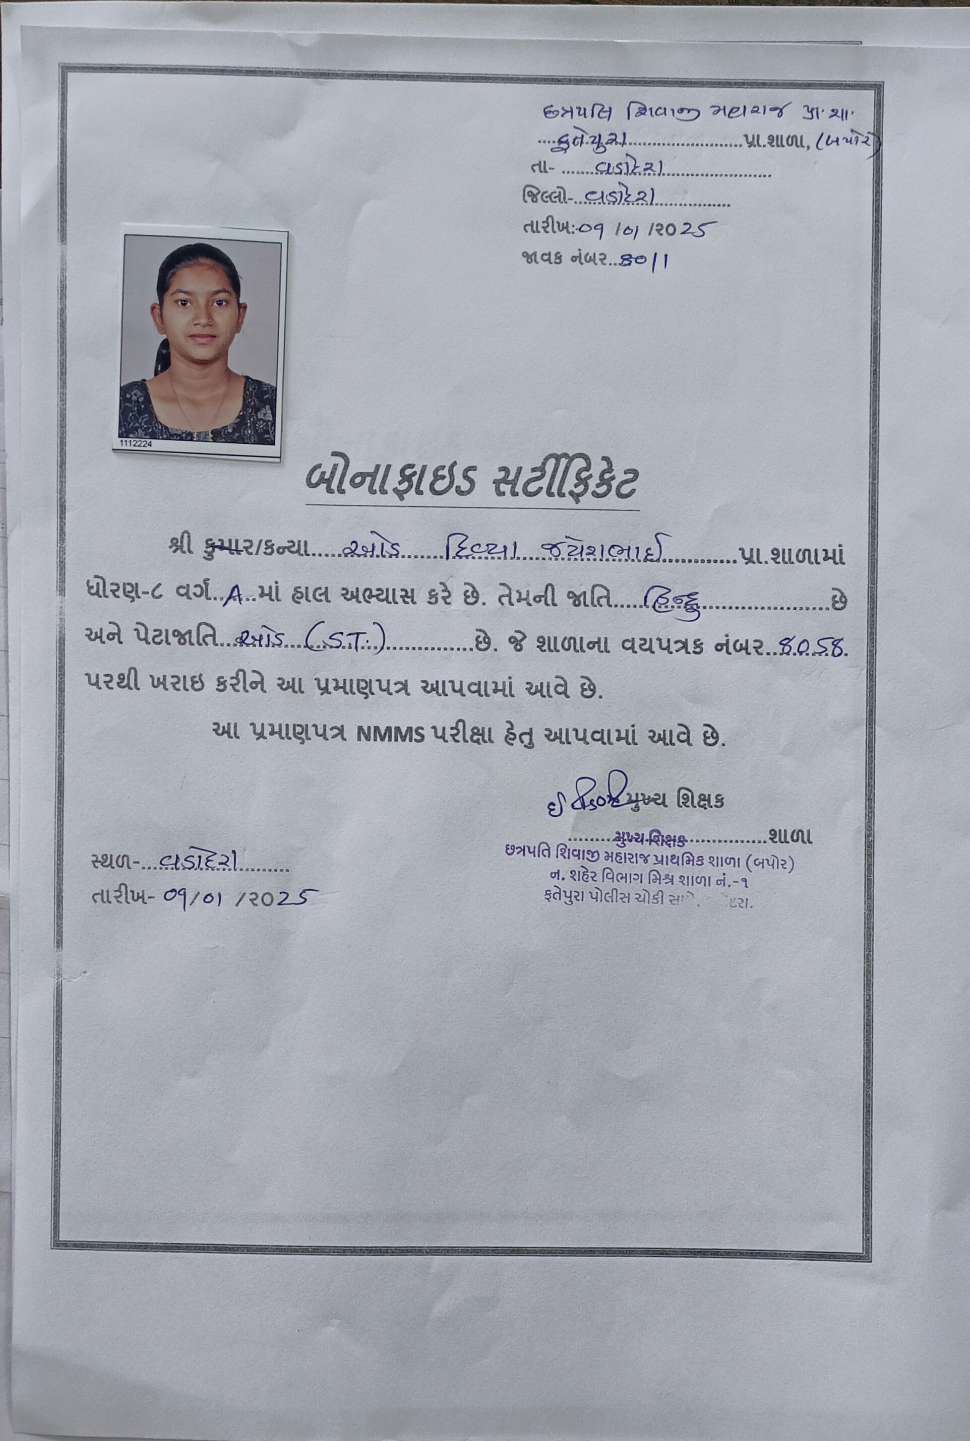 છત્રપતિ શિવાજી મહારાજ પ્રા. શા.
ફતેપુરા પ્રા.શાળા, (બપોર)
તા- વડોદરા
જિલ્લો- વડોદરા
તારીખ:- ૦૧ /૦૧ /૨૦૨5
જાવક નંબર..
1112224
બોનાફાઇડ સર્ટીફિકેટ
શ્રી કુમાર/કન્યા ઓડ દિવ્યા જયેશભાઈ પ્રા.શાળામાં
ધોરણ-૮ વર્ગ A માં હાલ અભ્યાસ કરે છે. તેમની જાતિ હિન્દુ છે
અને પેટાજાતિ ઓડ (S.T.) છે. જે શાળાના વયપત્રક નંબર
પરથી ખરાઇ કરીને આ પ્રમાણપત્ર આપવામાં આવે છે.
આ પ્રમાણપત્ર NMMS પરીક્ષા હેતુ આપવામાં આવે છે.
મુખ્ય શિક્ષક
શાળા
મુખ્ય શિક્ષક
છત્રપતિ શિવાજી મહારાજ પ્રાથમિક શાળા (બપોર)
ન. શહેર વિભાગ મિશ્ર શાળા નં.-૧
ફતેપુરા પોલીસ ચોકી
સ્થળ- વડોદરા
તારીખ- ૦૧/૦૧ /૨૦૨5